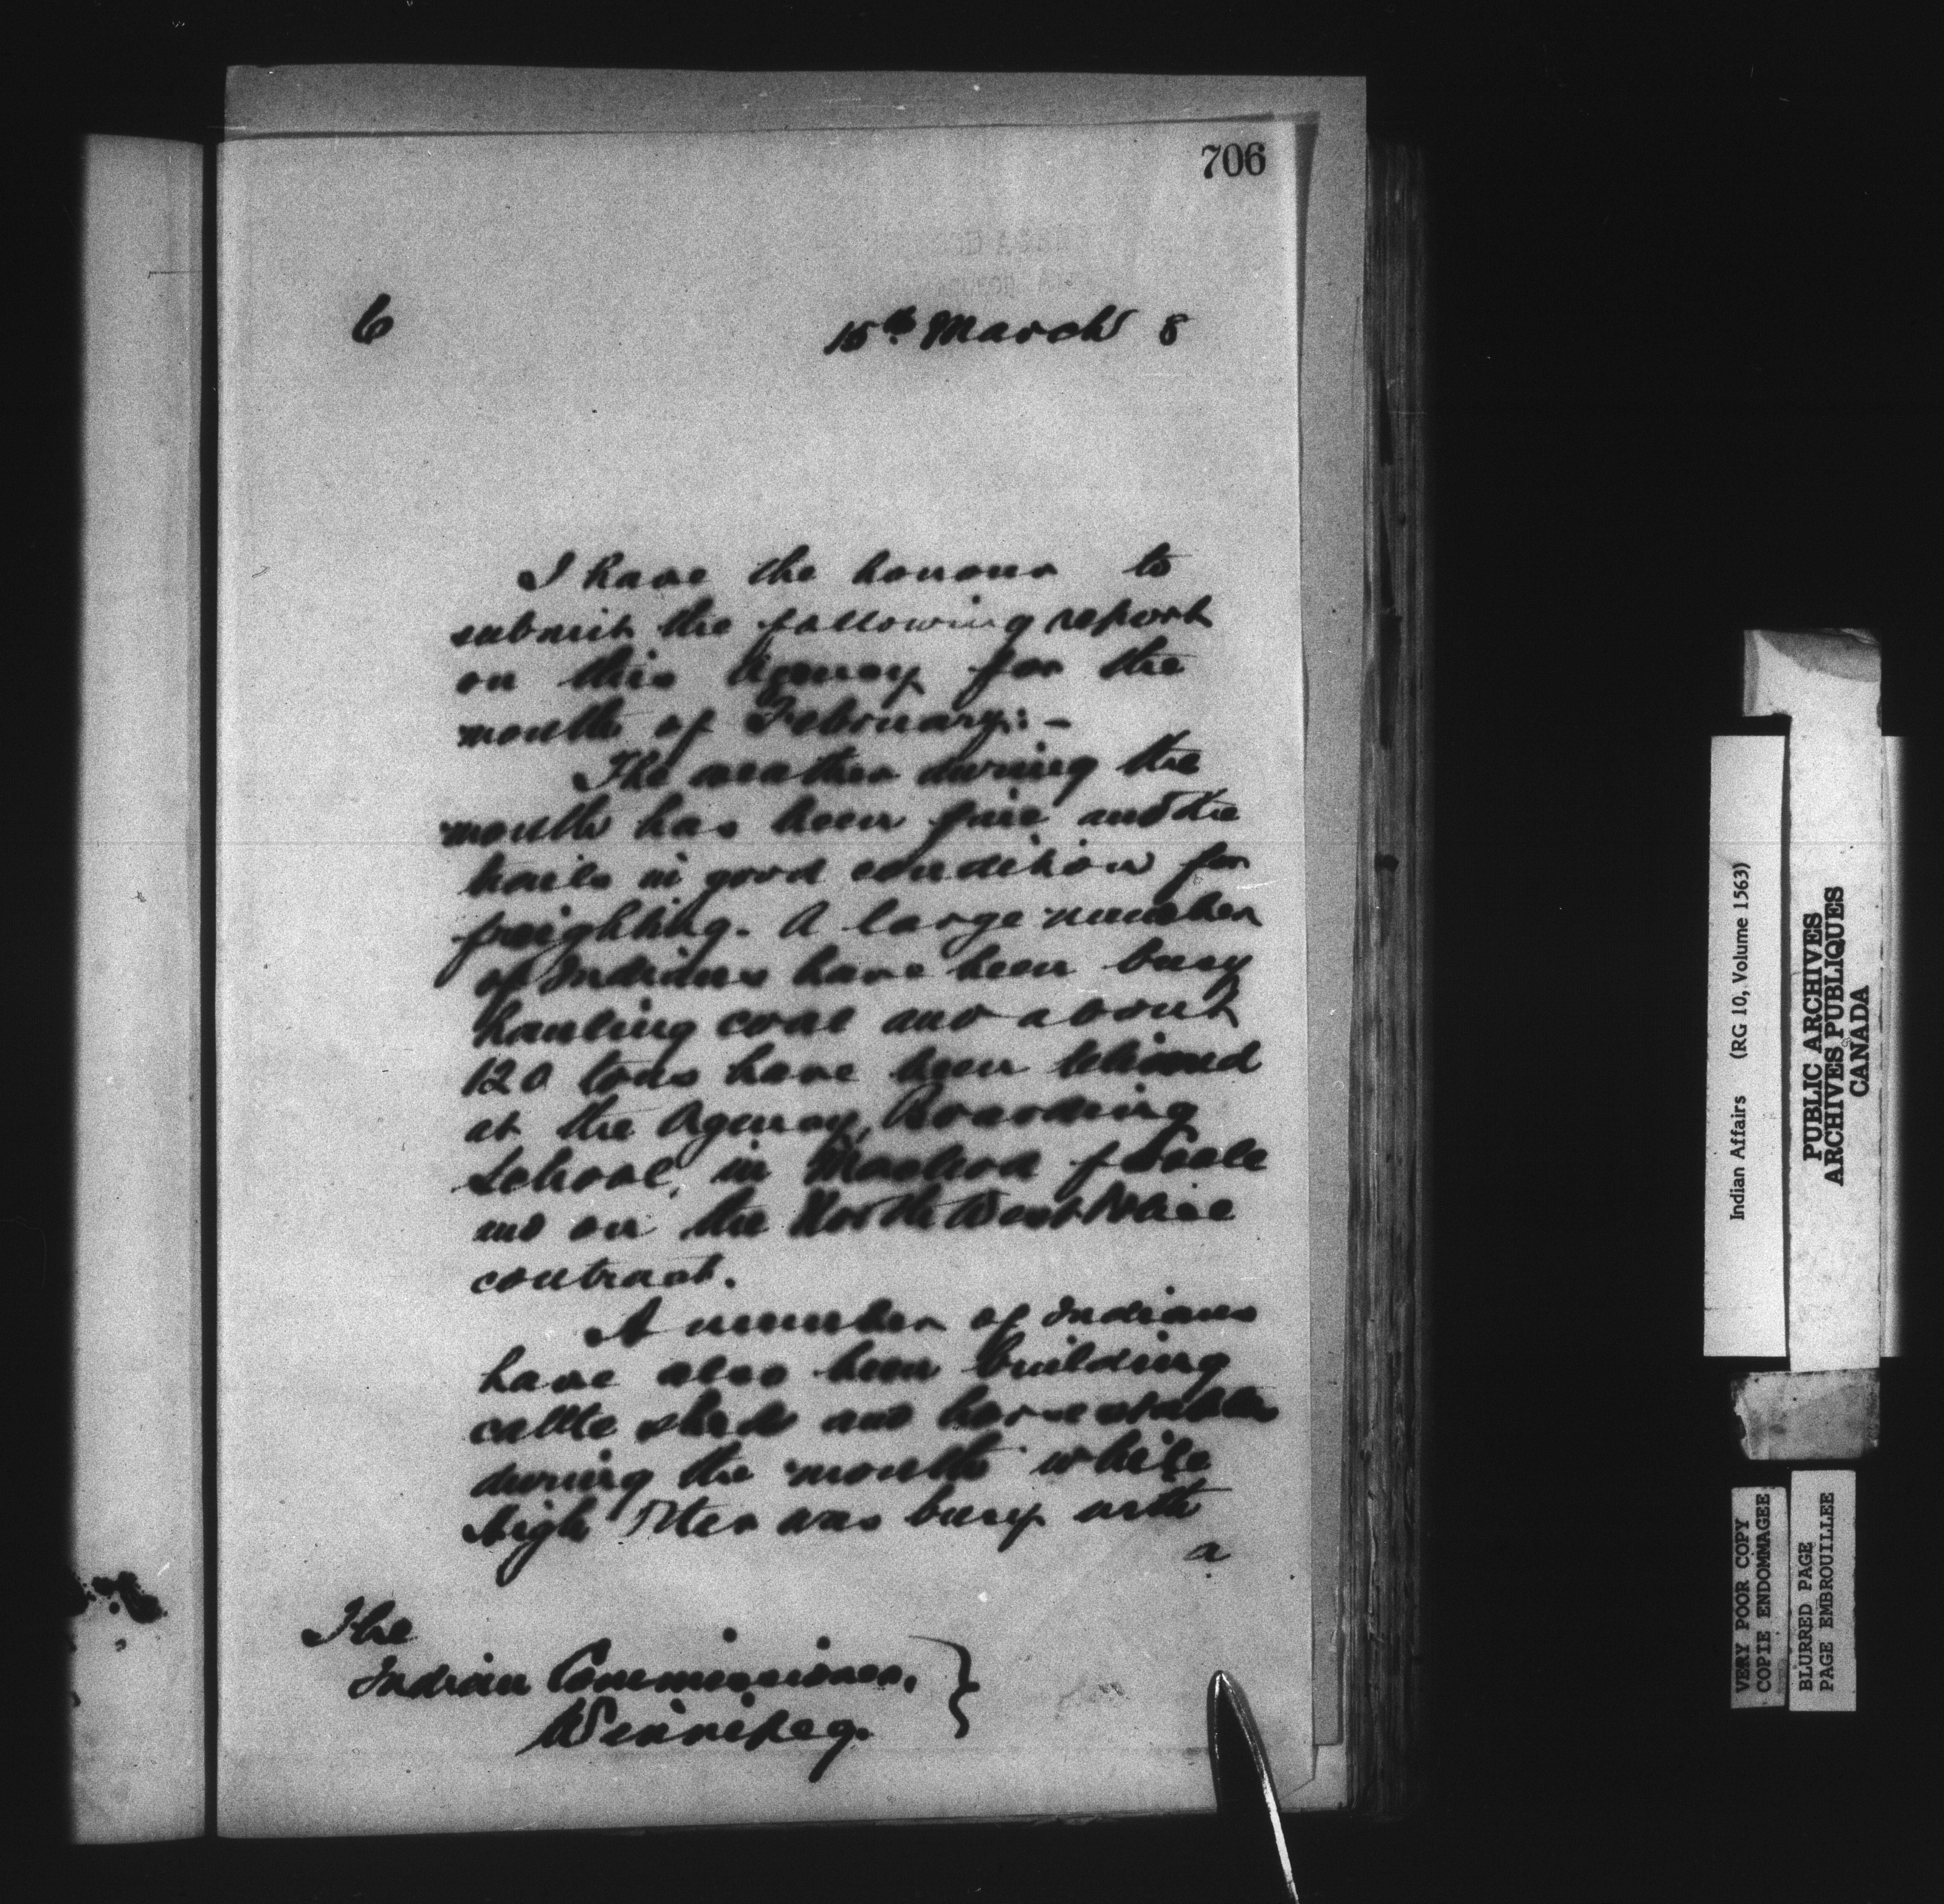 706
6 15th March 8
I have the honour to
submit the following report
on this Agency for the
month of February:-
The weather during the
month has been fine and the
trails in good condition for
freighting. A large number
of Indians have been busy
hauling coal and about
120 tons have been delivered
at the Agency, Boarding
School, in Macleod for sale
and on the North West Police
contract.
A number of Indians
have also been building
cattle sheds and horse stables
during the month while
was busy with
a
The
Indian Commissioner,
Winnipeg.
Indian Affairs (RG 10, Volume 1563)
PUBLIC ARCHIVES
ARCHIVES PUBLIQUES
CANADA
VERY POOR COPY
COPIE ENDOMMAGEE
BLURRED PAGE
PAGE EMBROUILLEE